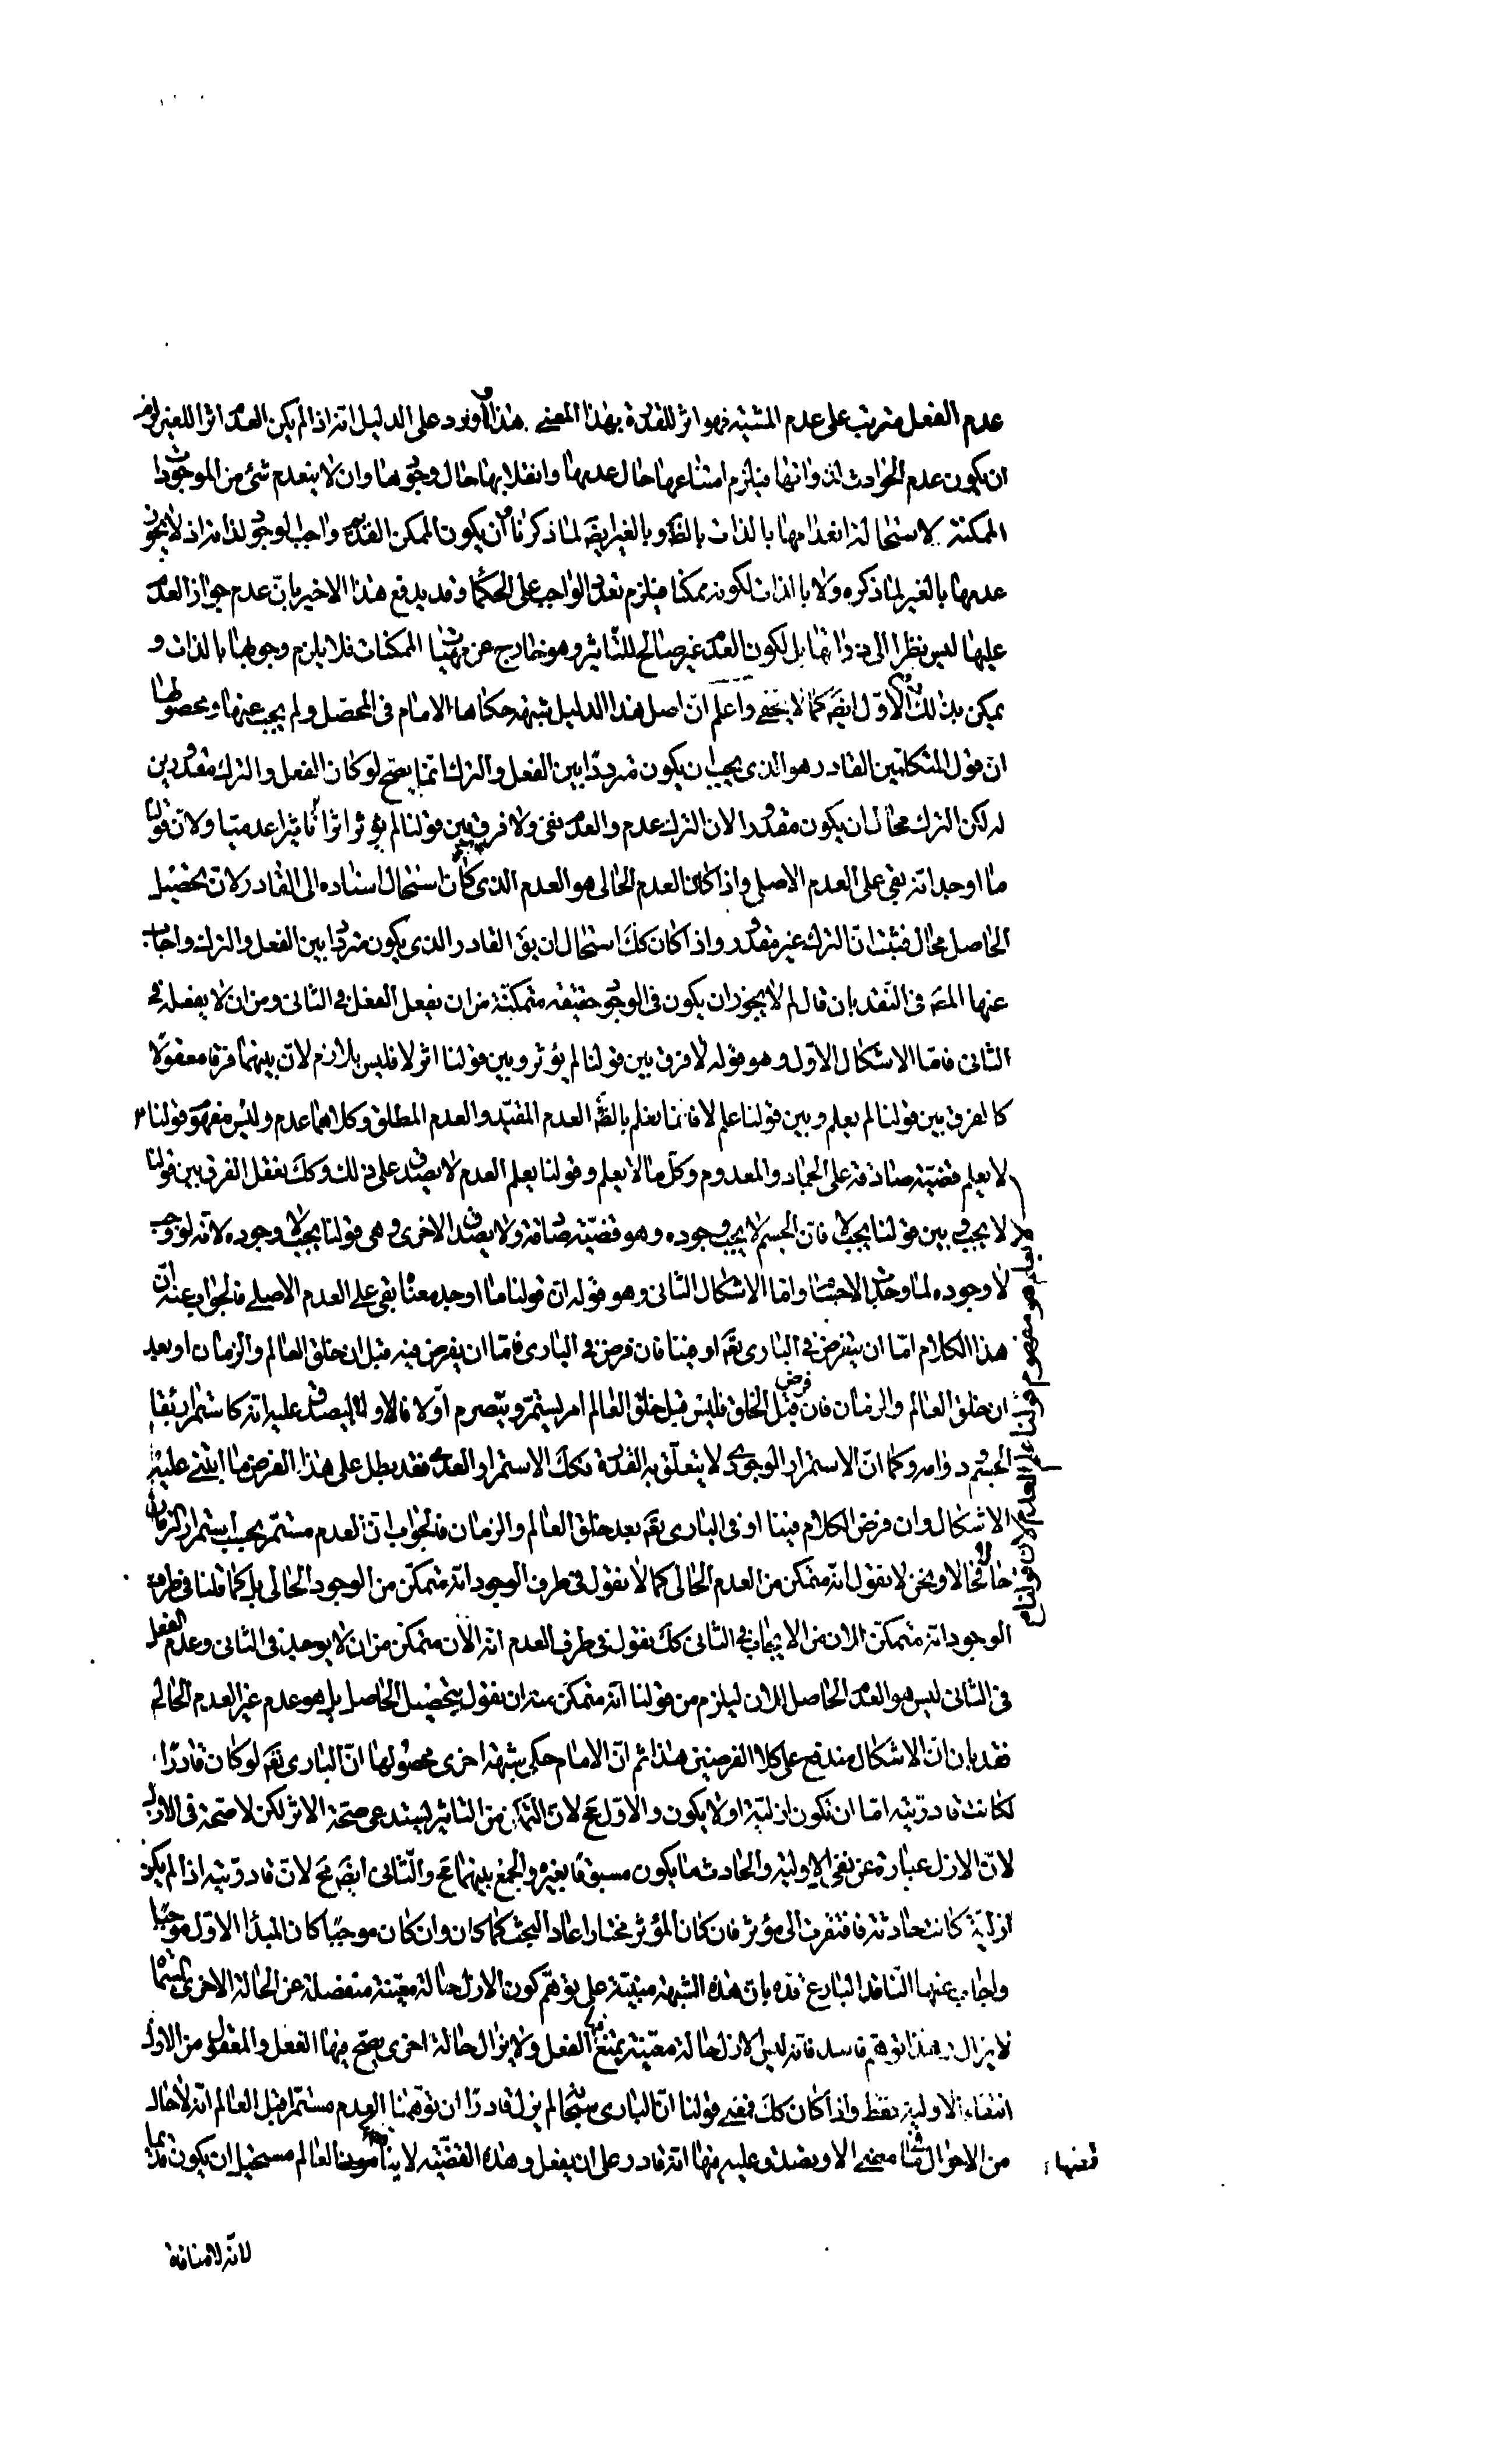 عدم الفعل مترتب على عدم المشية فهو اثر للقدرة بهذا المعنى هذا واورد على الدليل انه اذا لم يكن العدم اثرا للغير لزم
ان يكون عدم الحوادث لذواتها فيلزم امتناعها حال عدمها وانقلابها حال وجودها وان لا ينعدم شئ من الموجودات
الممكنة لاستحالة انعدامها بالذات بالضرورة وبالغير ايضا لما ذكرنا وان يكون الممكن القديم واجب الوجود لذاته اذ لا يجوز
عدمها بالغير لما ذكره ولا بالذات لكونه ممكنا فيلزم تعدد الواجب على الحكماء وقد يدفع هذا الاخير بان عدم جواز العدم
عليها ليس نظرا الى ذواتها بل لكون العدم غير صالح للتاثير وهو خارج عن مهيات الممكنات فلا يلزم وجوبها بالذات و
يمكن بذلك دفع الاول ايضا كما لا يخفى واعلم ان اصل هذا الدليل شبهة حكاها الامام فى المحصل ولم يجب عنها ومحصولها
ان قول المتكلمين القادر هو الذى يجب ان يكون مترددا بين الفعل والترك انما يصح لو كان الفعل والترك مقدورين
له لكن الترك محال ان يكون مقدورا لان الترك عدم والعدم نفى ولا فرق بين قولنا لم يؤثر اثرا تاثيرا عدميا ولان قولنا
ما اوجد انه بقى على العدم الاصلى واذا كان العدم الحالى هو العدم الذى كان استحال اسناده الى القادر لان تحصيل
الحاصل محال فثبت ان الترك غير مقدور واذا كان كك استحال ان يق القادر الذى يكون مترددا بين الفعل والترك واجاب
عنها المصه فى النقد بان قال لم لا يجوز ان يكون فى الوجود حقيقه متمكنة من ان يفعل الفعل فى الثانى ومن ان لا يفعله فى
الثانى فاما الاشكال الاول وهو قوله لا فرق بين قولنا لم يؤثر وبين قولنا اثر لا فليس بلازم لان بينهما فرقا معقولا
كالفرق بين قولنا لم يعلم وبين قولنا علم لا فانما يعلم بالضرورة العدم المقيد والعدم المطلق وكلاهما عدم وليس مفهوم قولنا
لا يعلم هو مفهوم قولنا علم العدم لان قولنا
لا يعلم قضية صادقة على الجماد والمعدوم وكل ما لا يعلم وقولنا يعلم العدم لا يصدق على ذلك وكك نعقل الفرق بين قولنا
لا يجب وبين قولنا يجب لا فان الجسم لا يجب وجوده وهو قضية صادقة ولا يصدق الاخرى وهى قولنا يجب لا وجوده لانه لو وجب
لا وجوده لما وجدت الاجسام واما الاشكال الثانى وهو قوله ان قولنا ما اوجد معناه بقى على العدم الاصلى فالجواب عنه ان
هذا الكلام اما ان يفرض فى البارى تعه او فينا فان فرض فى البارى فاما ان يفرض فيه قبل ان خلق العالم والزمان او بعد
ان خلق العالم والزمان فان فرض قبل الخلق فليس قبل خلق العالم امر يستمر ويتصرم اولا فالاولا ليصدق عليه انه كاستمرار بقاء
الجسم ودوامه وكما ان الاستمرار الوجودى لا يتعلق به القدرة فكك الاستمرار العدمى فقد بطل على هذا الفرض ما ابتنى عليه
الاشكال وان فرض الكلام فينا او فى البارى تعه بعد خلق العالم والزمان فالجواب ان العدم مستمر بحسب استمرار الزمان
حالا فحالا ونحن لا نقول انه متمكن من العدم الحالى كما لا نقول فى طرف الوجود انه متمكن من الوجود الحالى بل كما قلنا فى طرف
الوجود انه متمكن الان من الايجاب فى الثانى كك نقول فى طرف العدم انه الان متمكن من ان لا يوجد فى الثانى وعدم الفعل
فى الثانى ليس هو العدم الحاصل الان ليلزم من قولنا انه متمكن منه ان نقول بتحصيل الحاصل بل هو عدم غير العدم الحالى
فقد بان ان الاشكال مندفع على كلا الفرضين هذا ثم ان الامام حكى شبهة اخرى محصولها ان البارى تعه لو كان قادرا
لكانت قادريته اما ان تكون ازلية او لا يكون والاول مح لان التمكن من التاثير يستدعى صحة الاثر لكن لا صحة فى الازل
لان الازل عبارة عن نفى الاولية والحادث ما يكون مسبوقا بغيره والجمع بينهما مح والثانى ايضه مح لان قادريته اذا لم يكن
ازلية كانت حادثة فافتقرت الى مؤثر فان كان المؤثر مختارا عاد البحث كما كان وان كان موجبا كان المبدأ الاول موجبا
واجاب عنها الناقد البارع قده بان هذه الشبهة مبنية على توهم كون الازل حالة معينة منفصلة عن الحالة الاخرى المسماة
لا يزال وهذا توهم فاسد فانه ليس الازل حالة معينة يمتنع فيها الفعل ولا يزال حالة اخرى يصح فيها الفعل والمعقول من الازل
انتفاء الاولية فقط واذا كان كك فمعنى قولنا ان البارى سبحانه لم يزل قادرا ان توهمنا العدم مستمرا قبل العالم انه لا حال
من الاحوال فيها معنى الا ويصدق عليه فيها انه قادر على ان يفعل وهذه القضية لا ينافى كون العالم مستحيل ان يكون قديما
لانه لا منافاة